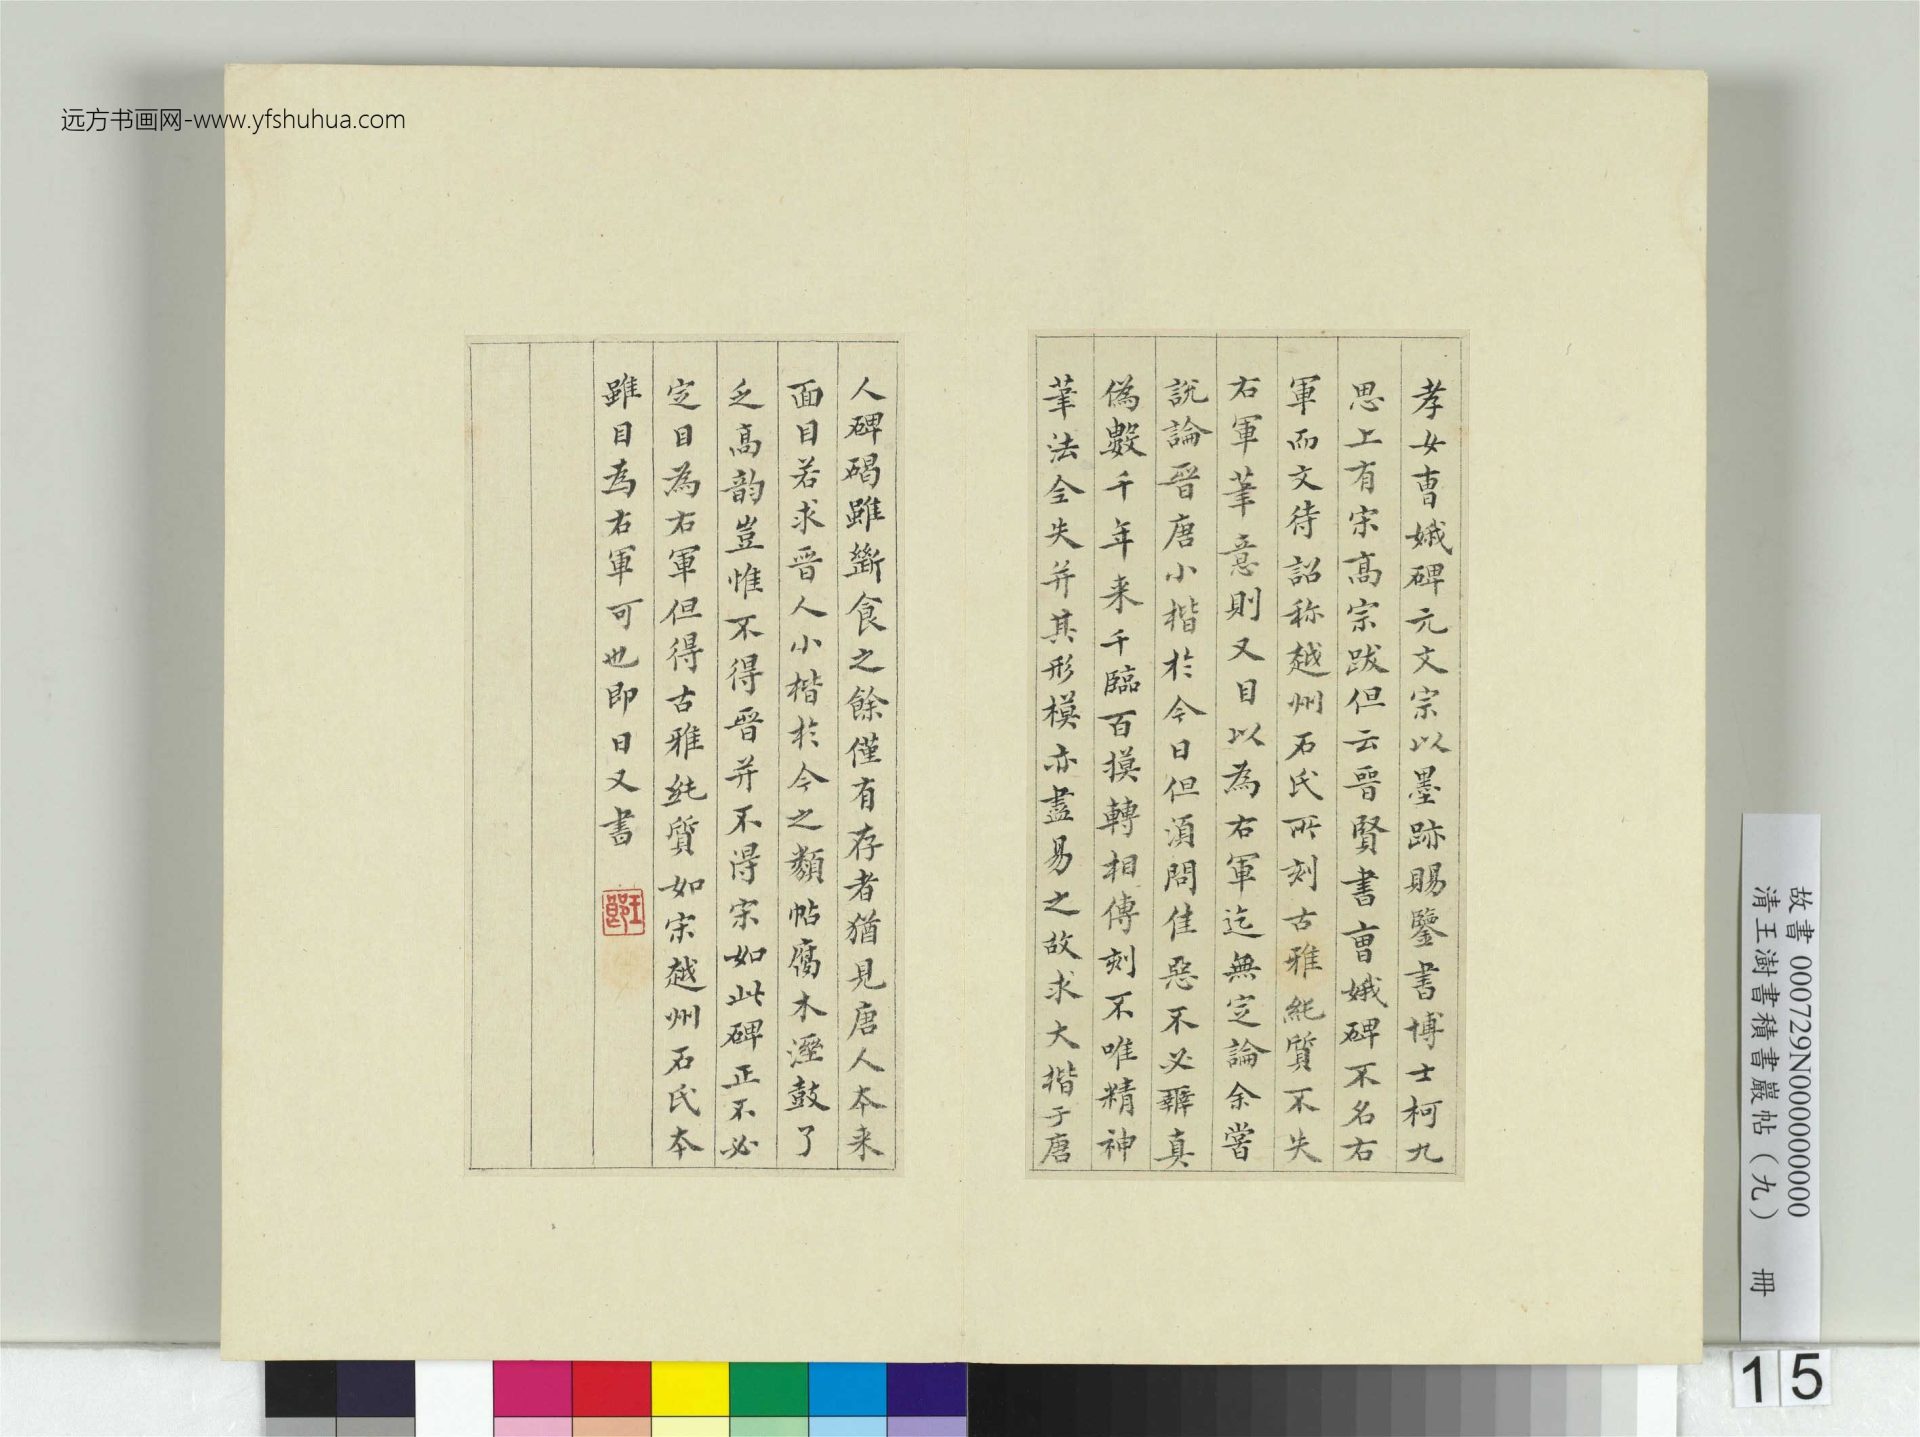 远方书画网-www.yfshuhua.com
孝女曹娥碑元文宗以墨跡賜鑒書博士柯九
思上有宋高宗跋但云晉賢書曹娥碑不名右
軍而文待詔称越州石氏所刻古雅純質不失
右軍筆意則又目以為右軍迄無定論余嘗
説論晉唐小楷於今日但湏問佳惡不必辨真
偽數千年来千臨百摸轉相傳刻不唯精神
筆法全失并其形模亦盡易之故求大楷于唐
人碑碣雖斷食之餘僅有存者猶見唐人本来
面目若求晉人小楷於今之類帖腐木溼鼓了
乏高韵豈惟不得晉并不得宋如此碑正不必
定目為右軍但得古雅純質如宋越州石氏本
雖目為右軍可也即日又書
故書 000729N000000000
清王澍書積書巖帖（九） 冊
15